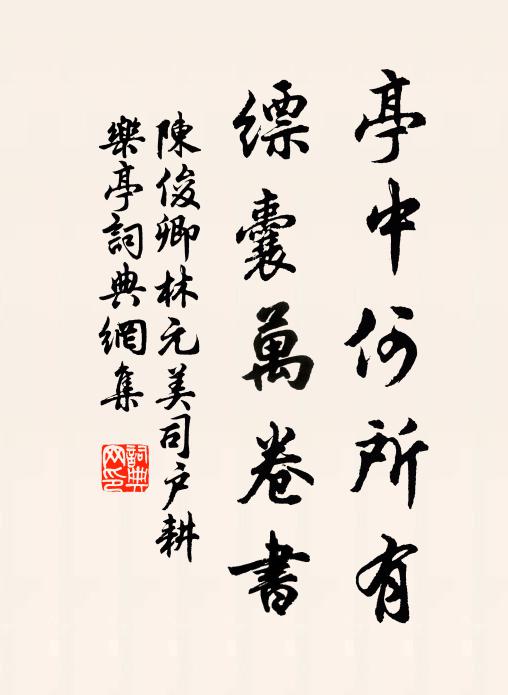 亭中何所有
縹囊萬卷書
陳俊卿林元美司户耕
樂亭詞典網集
詞典网印